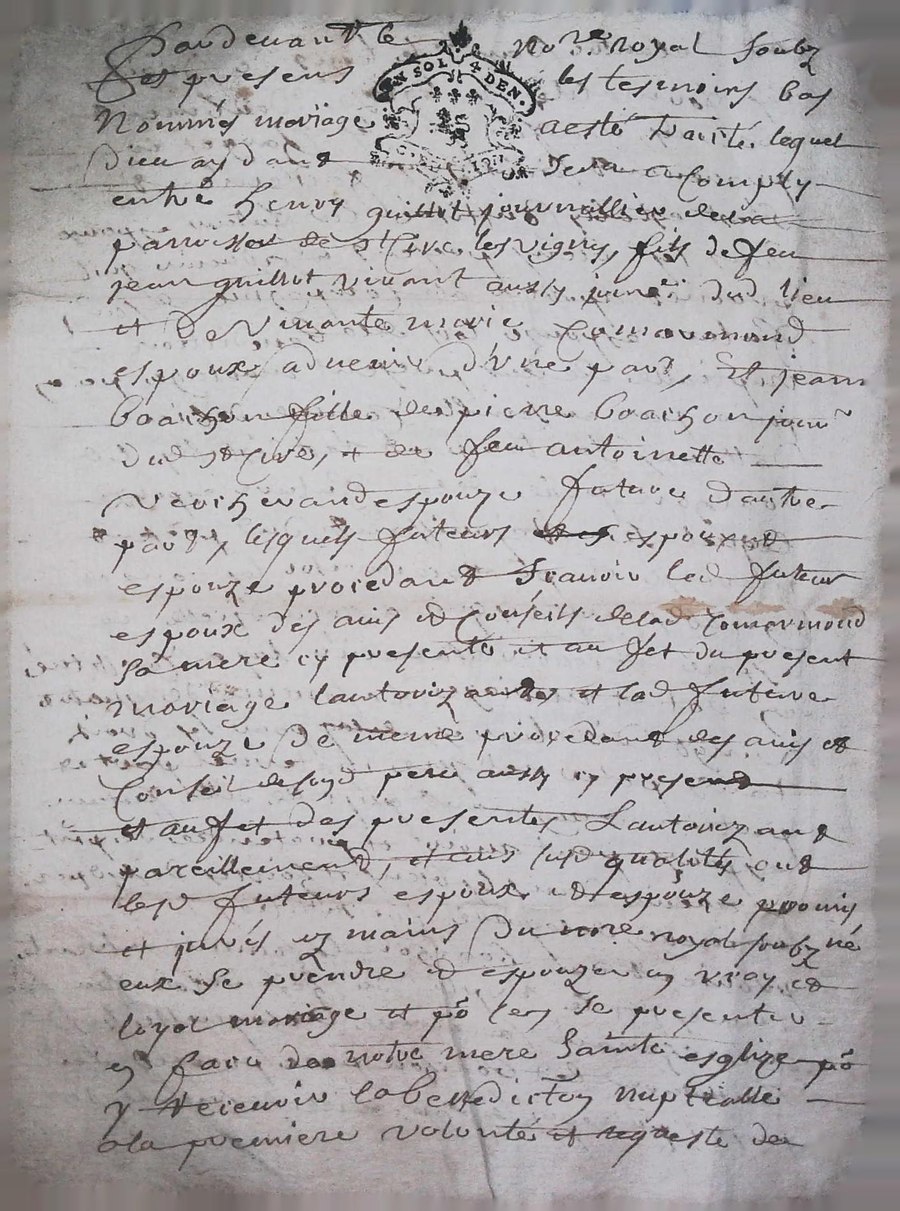 Pardevant le no.re royal soubz
et presens les tesmoins bas
Nommés mariage a esté traité, lequel
UN SOL 4 DEN.
Dieu aydant sera accomply
entre henry guillot journallier de la
parroisse de st Cire les vignes, fils de feu
jean guillot vivant aussy journ.er dud. lieu
et de vivante marie
espoux advenir d'une part, Et jeane
boachon fille de pierre boachon journ
dud st Cire, et de feu antoinette
Verchevand espouze future d'autre
part, lesquels futeurs espoux et
espouze procedant sçavoir led. futeur
espoux des avis et Conseils de lad
Sa mere cy presente et au fet du present
mariage lautorizante et lad. future
espouze de meme procedant des avis et
Conseil de sond pere aussy cy present
et au fet des presentes Lautorizant
pareillement, et aus susd qualités ont
lesd futeurs espoux et espouze promis
et jurés ez mains du no.re royal soubz.né
eux se prendre et espouzer en vray et
loyal mariage et po.r ce se presenter
en face de notre mere Sainte esglize po.r
y recevoir la benediction nuptialle
a la premiere volonté et requeste de